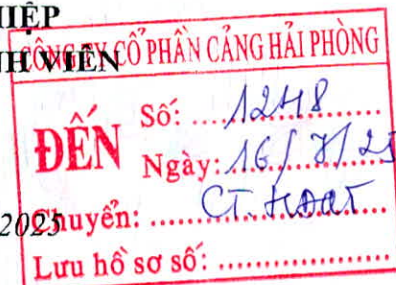 HIỆP
NH VIÊN
CÔNG TY CỔ PHẦN CẢNG HẢI PHÒNG
ĐẾN
Số: ....1248....
Ngày: 16/7/25
2025
Chuyển: .... CT. HĐQT ....
Lưu hồ sơ số: ....